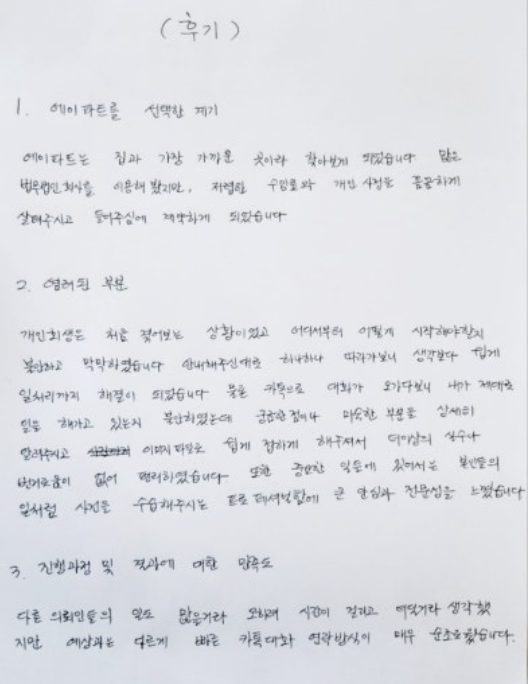 (후기)
1. 에이파트를 선택한 계기
에이파트는 집과 가장 가까운 곳이라 찾아보게 되었습니다 많은
법무법인회사를 이용해 봤지만, 저렴한 수임료와 개인 사정을 꼼꼼하게
살펴주시고 들어주심에 계약하게 되었습니다
2. 염려된 부분
개인회생은 처음 겪어보는 상황이었고 어디서부터 어떻게 시작해야할지
불안하고 막막하였습니다 안내해주신대로 하나하나 따라가보니 생각보다 쉽게
일처리까지 해결이 되었습니다 물론 카톡으로 대화가 오가다보니 내가 제대로
일을 해가고 있는지 불안하였는데 궁금한점이나 미숙한 부분을 상세히
알려주시고 이미지파일로 쉽게 접하게 해주셔서 더이상의 실수나
번거로움이 없어 편리하였습니다. 또한 중요한 일들에 있어서는 본인들의
일처럼 사건을 수습해주시는 프로페셔널함에 큰 안심과 전문성을 느꼈습니다
3. 진행과정 및 결과에 대한 만족도
다른 의뢰인들의 일도 많을거라 오히려 시간이 걸리고 더딜거라 생각했
지만 예상과는 다르게 빠른 카톡대화 연락방식이 매우 순조로웠습니다.